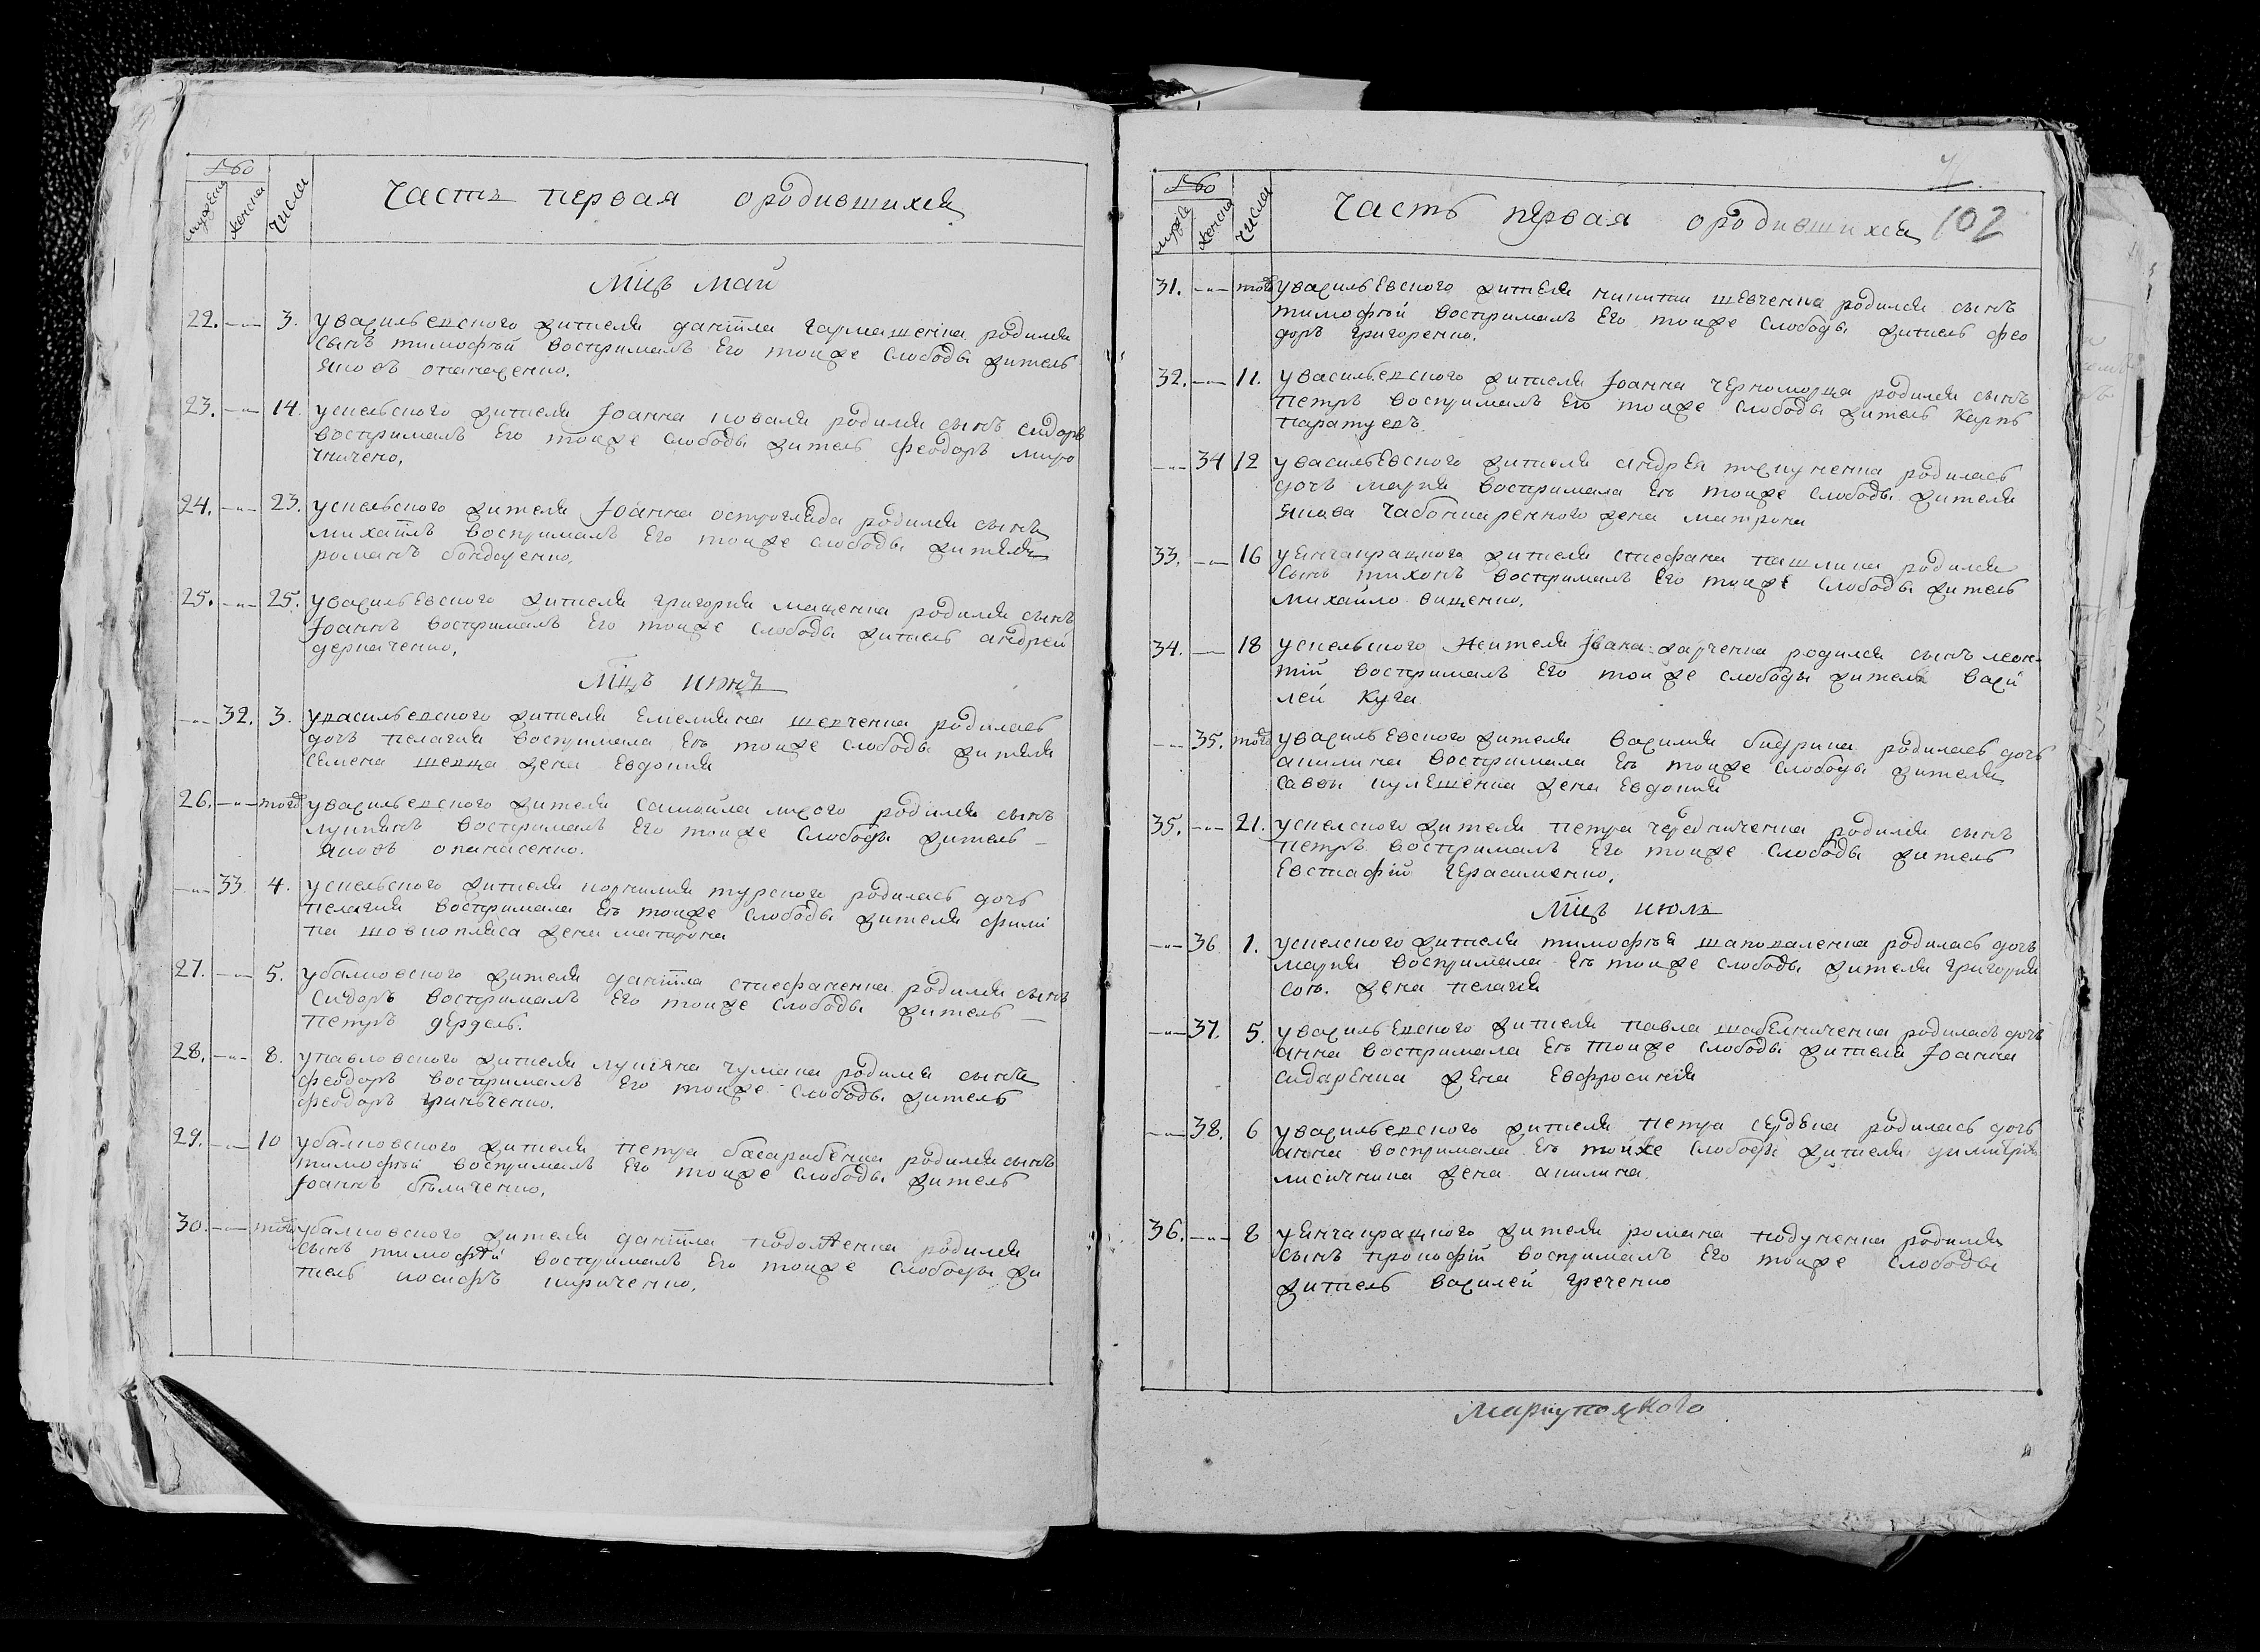 Число
Часть первая ородившихся
Мцъ май
22. 3. увасильевского жителя даніила гармашенка родился
сынъ тимофѣй воспрималъ его тоиже слободы житель
яковъ опанасенко.
23. 14. успевского жителя Іоанна коваля родился сынъ сидоръ
воспрималъ его тоиже слободы житель феодоръ миро
шниченко.
24. 23. жителя Іоанна остогляда родился сынъ
михаилъ воспрималъ его тоиже слободы житель
романъ бондаренко.
25. 25. увасильевского жителя григория мащенка родился сынъ
Іоаннъ воспрималъ его тоиже слободы житель андрей
деркаченко.
Мцъ июнь
32. 3. увасильевского жителя емелиана шевченка родилась
дочь пелагия воспримала еѣ тоиже слободы жителя
семена шевца жена евдокия
26. тогож увасильевского жителя самойла лисого родился сынъ
лукиянъ воспрималъ его тоиже слободы житель
яковъ опанасенко.
33 4. жителя корнилия турского родилась дочь
пелагия воспримала еѣ тоиже слободы жителя фили
па жена матрона
27. 5. убалковского жителя даніила стефаненка родился сынъ
сидоръ воспрималъ его тоиже слободы житель
петръ дердель.
28. 8. упавловского жителя лукіяна чумака родился сынъ
феодоръ воспрималъ его тоиже слободы житель
феодоръ гриньченко.
29. 10 убалковского жителя петра басарабенка родился сынъ
тимофѣй воспрималъ его тоиже слободы житель
Іоаннъ бѣличенко.
30. тогож убалковского жителя даніила подолѣенка родился
сынъ тимофѣй воспрималъ его тоиже слободы жи
тель иосифъ кириченко.
Число
Часть первая ородившихся 102
31. тогож увасильевского жителя никиты шевченка родился сынъ
тимофѣй воспрималъ его тоиже слободы житель фео
доръ григоренко.
32. 11. увасильевского жителя Іоанна черноморца родился сынъ
петръ воспрималъ его тоиже слободы житель карпъ
паратуевъ.
34 12 увасильевского жителя андрея родилась
дочь мария воспримала еѣ тоиже слободы жителя
якова жена матрона
33. 16 жителя стефана пашлика родился
сынъ тихонъ воспрималъ его тоиже слободы житель
михайло ищенко.
34. 18 жителя Ивана харченка родился сынъ леон-
тій воспрималъ его тоиже слободы житель васи
лей Куча
35. тогож увасильевского жителя василия родилась дочь
акилина воспримала еѣ тоиже слободы жителя
савы кулешенка жена евдокия
35. 21. жителя петра чередниченка родился сынъ
петръ воспрималъ его тоиже слободы житель
евстафій герасименко.
Мцъ июль
36 1. жителя тимофѣя шаповаленка родилась дочь
мария воспримала еѣ тоиже слободы жителя григория
жена пелагия
37. 5. увасильевского жителя павла шабелниченка родилась дочь
анна воспримала еѣ тоиже слободы жителя Іоанна
сидаренка жена евфросиния
38. 6 увасильевского жителя петра сердюка родилась дочь
анна воспримала еѣ тоиже слободы жителя димитрия
лисичкина жена акилина.
36. 8 жителя романа родился
сынъ прокофій воспрималъ его тоиже слободы
житель василей греченко